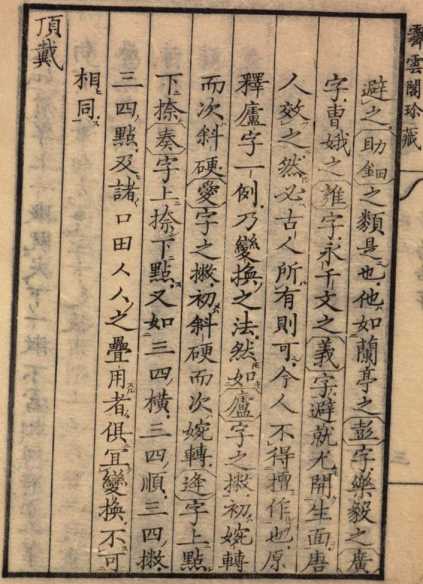 霽雲閣珍藏
避之助鉏之類是也他如蘭亭之彭字樂毅之廣
字曹娥之誰字永千文之義字避就尤開生面唐
人效之然必古人所有則可今人不得擅作也原
釋廬字一例乃變換之法然如廬字之撇初婉轉
而次斜硬愛字之撇初斜硬而次婉轉逢字上點
下捺奏字上捺下點又如三四橫三四順三四撇
三四點及諸口田人人之疊用者俱宜變換不可
相同
頂戴